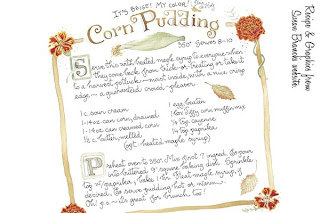 IT'S BEIGE! MY COLOR!
Corn Pudding
350° SERVES 8-10
Serve this with heated maple syrup to everyone when
they come back from trick-or-treating or take it
to a harvest potluck - moist inside, with a nice crisp
edge - a guaranteed crowd-pleaser.
1 c. sour cream
1-14oz. can corn, drained
1-14oz. can creamed corn
1/2 c. butter, melted
1 egg, beaten
1-8oz. Jiffy corn muffin mix
1/4 tsp. cayenne
1/4 tsp. paprika
(opt: heated maple syrup)
Preheat oven to 350°. Mix first 7 ingred. & pour
into buttered 9" square baking dish. Sprinkle
top w/ paprika, bake 1 hr. Heat maple syrup, if
desired, & serve pudding hot or warm.
Oh! p.s. - it's great for brunch too!
Recipe & Graphics from
Susan Branch website.